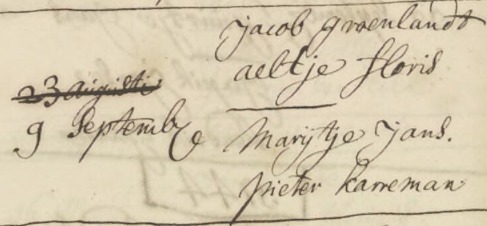 Jacob groenlandt
aeltje floris
23 augusti
9 Septemb
Marijtje Jans.
pieter karreman